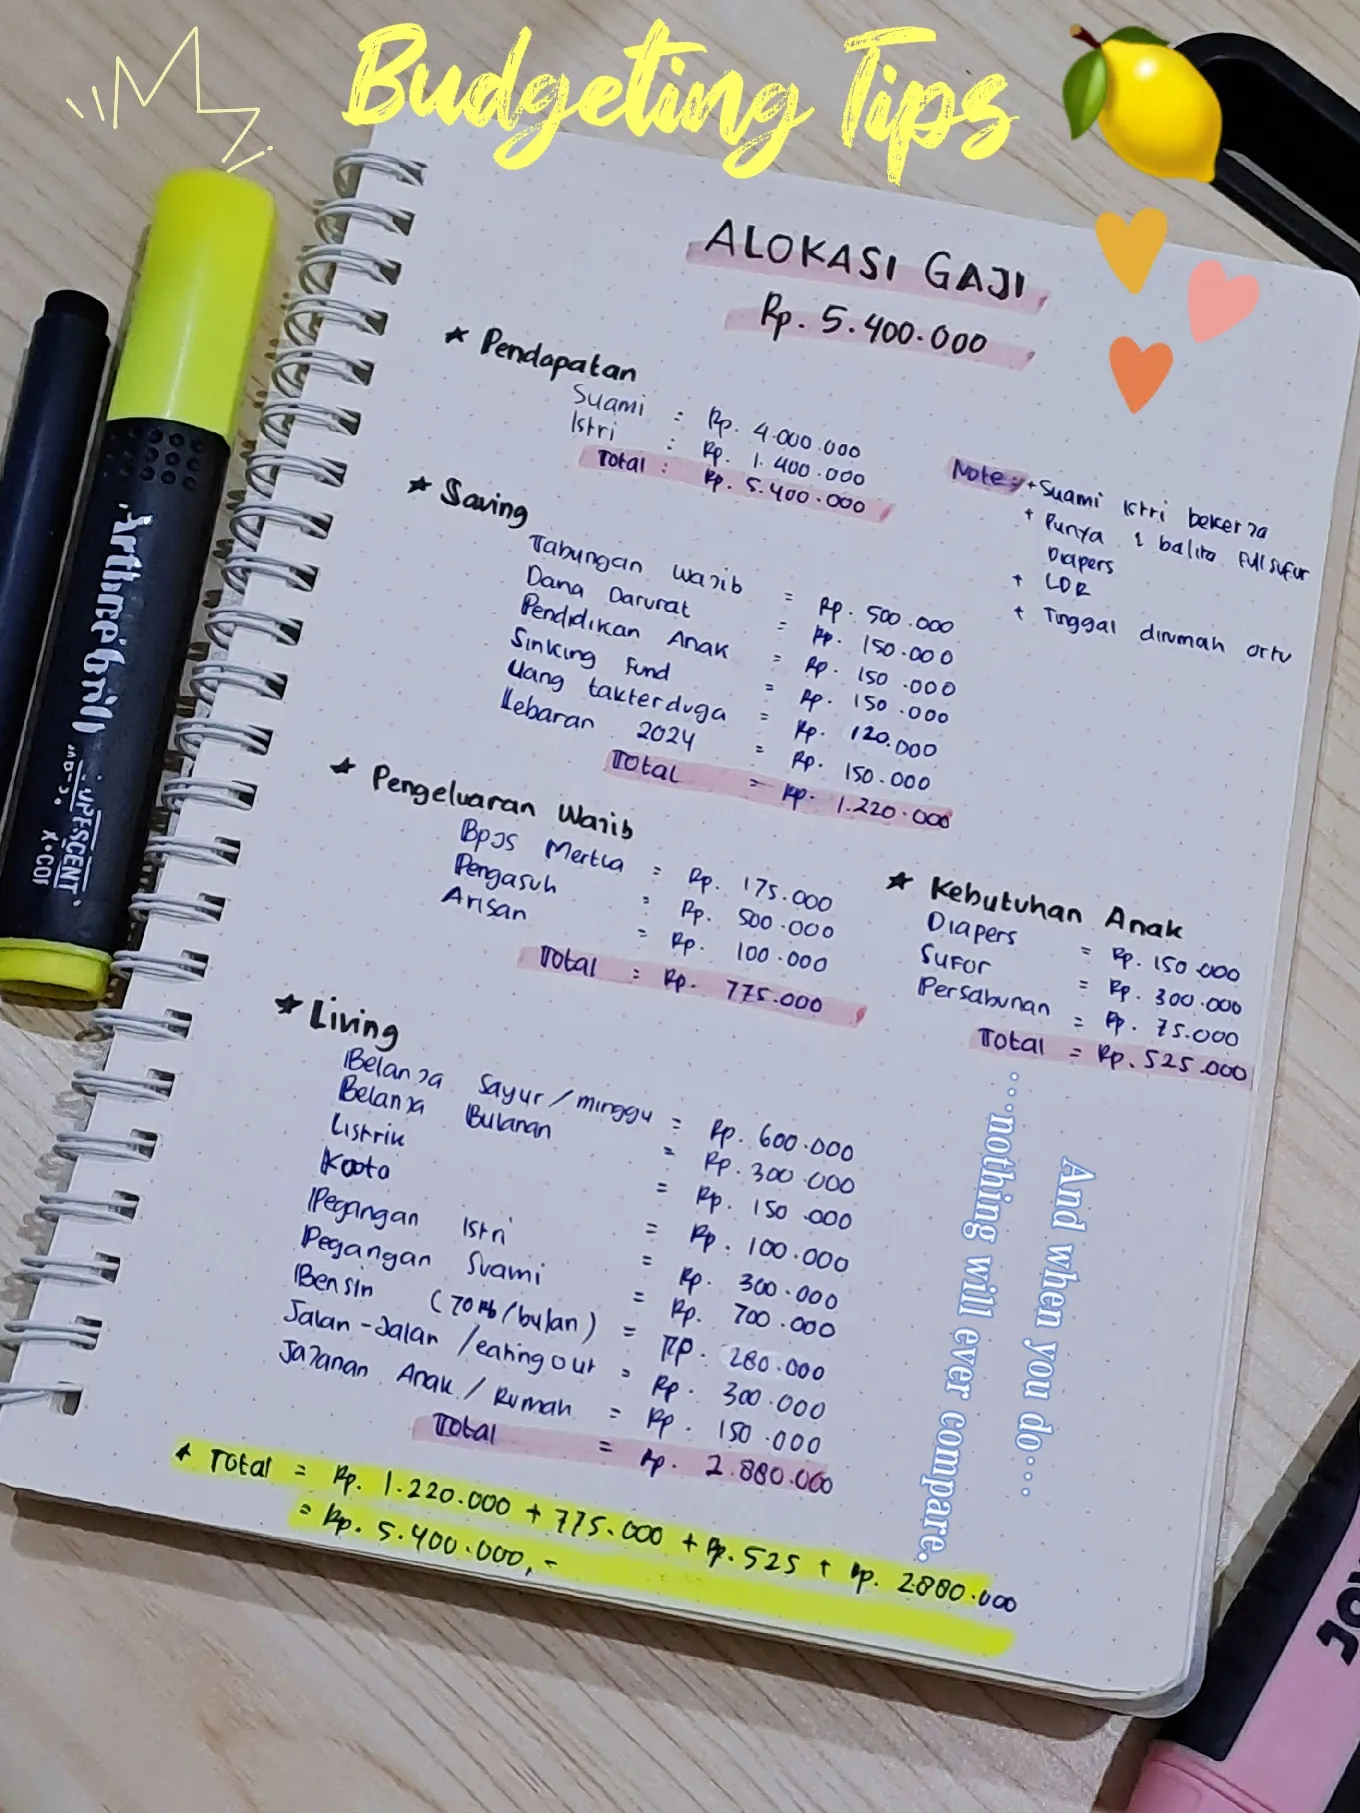 Budgeting Tips
ALOKASI GAJI
Rp. 5.400.000
★ Pendapatan
Suami : Rp. 4.000.000
Istri : Rp. 1.400.000
Total : Rp. 5.400.000
Note : + Suami istri bekerja
+ Punya 1 balita full sufor
Diapers
+ LDR
+ Tinggal dirumah ortu
★ Saving
Tabungan wajib = Rp. 500.000
Dana Darurat = Rp. 150.000
Pendidikan Anak = Rp. 150.000
Sinking Fund = Rp. 150.000
Uang takterduga = Rp. 120.000
Lebaran 2024 = Rp. 150.000
Total = Rp. 1.220.000
★ Pengeluaran Wajib
Bpjs Mertua = Rp. 175.000
Pengasuh : Rp. 500.000
Arisan = Rp. 100.000
Total : Rp. 775.000
★ Kebutuhan Anak
Diapers = Rp. 150.000
Sufor = Rp. 300.000
Persabunan = Rp. 75.000
Total = Rp. 525.000
★ Living
Belanja Sayur / minggu = Rp. 600.000
Belanja Bulanan = Rp. 300.000
Listrik = Rp. 150.000
Kooto = Rp. 100.000
Pegangan Istri = Rp. 300.000
Pegangan Suami = Rp. 700.000
Bensin (70rb/bulan) = Rp. 280.000
Jalan-Jalan /eating out = Rp. 300.000
Jajanan Anak / Rumah = Rp. 150.000
Total = Rp. 2.880.000
★ Total = Rp. 1.220.000 + 775.000 + Rp. 525 + Rp. 2880.000
= Rp. 5.400.000,-
And when you do....
....nothing will ever compare.